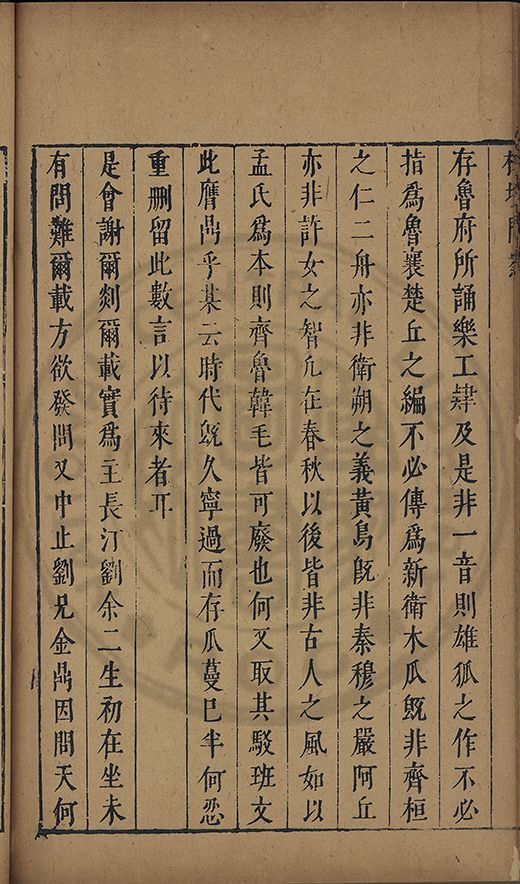 存魯府所誦樂工肄及是非一音則雄狐之作不必
指爲魯襄楚丘之編不必傳爲新衛木瓜旣非齊桓
之仁二舟亦非衛朔之義黃鳥旣非秦穆之嚴阿丘
亦非許女之智凢在春秋以後皆非古人之風如以
孟氏爲本則齊魯韓毛皆可廢也何又取其駁班文
此贋鼎乎某云時代旣久寧過而存瓜蔓已半何忍
重刪留此數言以待來者耳
是會謝爾剡爾載實爲主長汀劉余二生初在坐未
有問難爾載方欲發問又中止劉兄金鼎因問天何